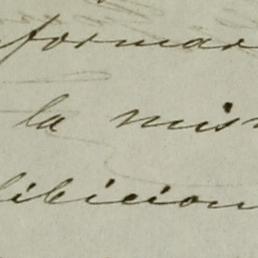 formar
la mis
libicion